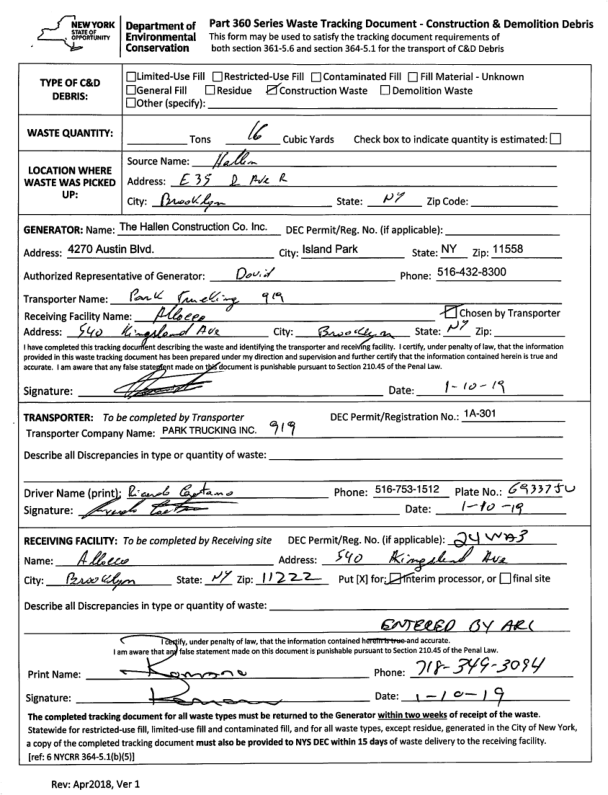 NEW YORK STATE OF OPPORTUNITY
Department of Environmental Conservation
Part 360 Series Waste Tracking Document - Construction & Demolition Debris
This form may be used to satisfy the tracking document requirements of
both section 361-5.6 and section 364-5.1 for the transport of C&D Debris
TYPE OF C&D DEBRIS:
Limited-Use Fill Restricted-Use Fill Contaminated Fill Fill Material - Unknown
General Fill Residue Construction Waste Demolition Waste
Other (specify):
WASTE QUANTITY: Tons 16 Cubic Yards Check box to indicate quantity is estimated:
LOCATION WHERE WASTE WAS PICKED UP:
Source Name: Hallen
Address: E 35 D Ave R
City: Brooklyn State: NY Zip Code:
GENERATOR: Name: The Hallen Construction Co. Inc. DEC Permit/Reg. No. (if applicable):
Address: 4270 Austin Blvd. City: Island Park State: NY Zip: 11558
Authorized Representative of Generator: David Phone: 516-432-8300
Transporter Name: Park Trucking 919
Receiving Facility Name: Allocco Chosen by Transporter
Address: 540 Kingsland Ave City: Brooklyn State: NY Zip:
I have completed this tracking document describing the waste and identifying the transporter and receiving facility. I certify, under penalty of law, that the information
provided in this waste tracking document has been prepared under my direction and supervision and further certify that the information contained herein is true and
accurate. I am aware that any false statement made on this document is punishable pursuant to Section 210.45 of the Penal Law.
Signature: Date: 1-10-19
TRANSPORTER: To be completed by Transporter DEC Permit/Registration No.: 1A-301
Transporter Company Name: PARK TRUCKING INC. 919
Describe all Discrepancies in type or quantity of waste:
Driver Name (print): Ricardo Caetano Phone: 516-753-1512 Plate No.: 69337JU
Signature: Date: 1-10-19
RECEIVING FACILITY: To be completed by Receiving site DEC Permit/Reg. No. (if applicable): 24WA3
Name: Allocco Address: 540 Kingsland Ave
City: Brooklyn State: NY Zip: 11222 Put [X] for: Interim processor, or final site
Describe all Discrepancies in type or quantity of waste:
ENTERED BY ARC
I certify, under penalty of law, that the information contained herein is true and accurate.
I am aware that any false statement made on this document is punishable pursuant to Section 210.45 of the Penal Law.
Print Name: Phone: 718-349-3094
Signature: Date: 1-10-19
The completed tracking document for all waste types must be returned to the Generator within two weeks of receipt of the waste.
Statewide for restricted-use fill, limited-use fill and contaminated fill, and for all waste types, except residue, generated in the City of New York,
a copy of the completed tracking document must also be provided to NYS DEC within 15 days of waste delivery to the receiving facility.
[ref: 6 NYCRR 364-5.1(b)(5)]
Rev: Apr2018, Ver 1